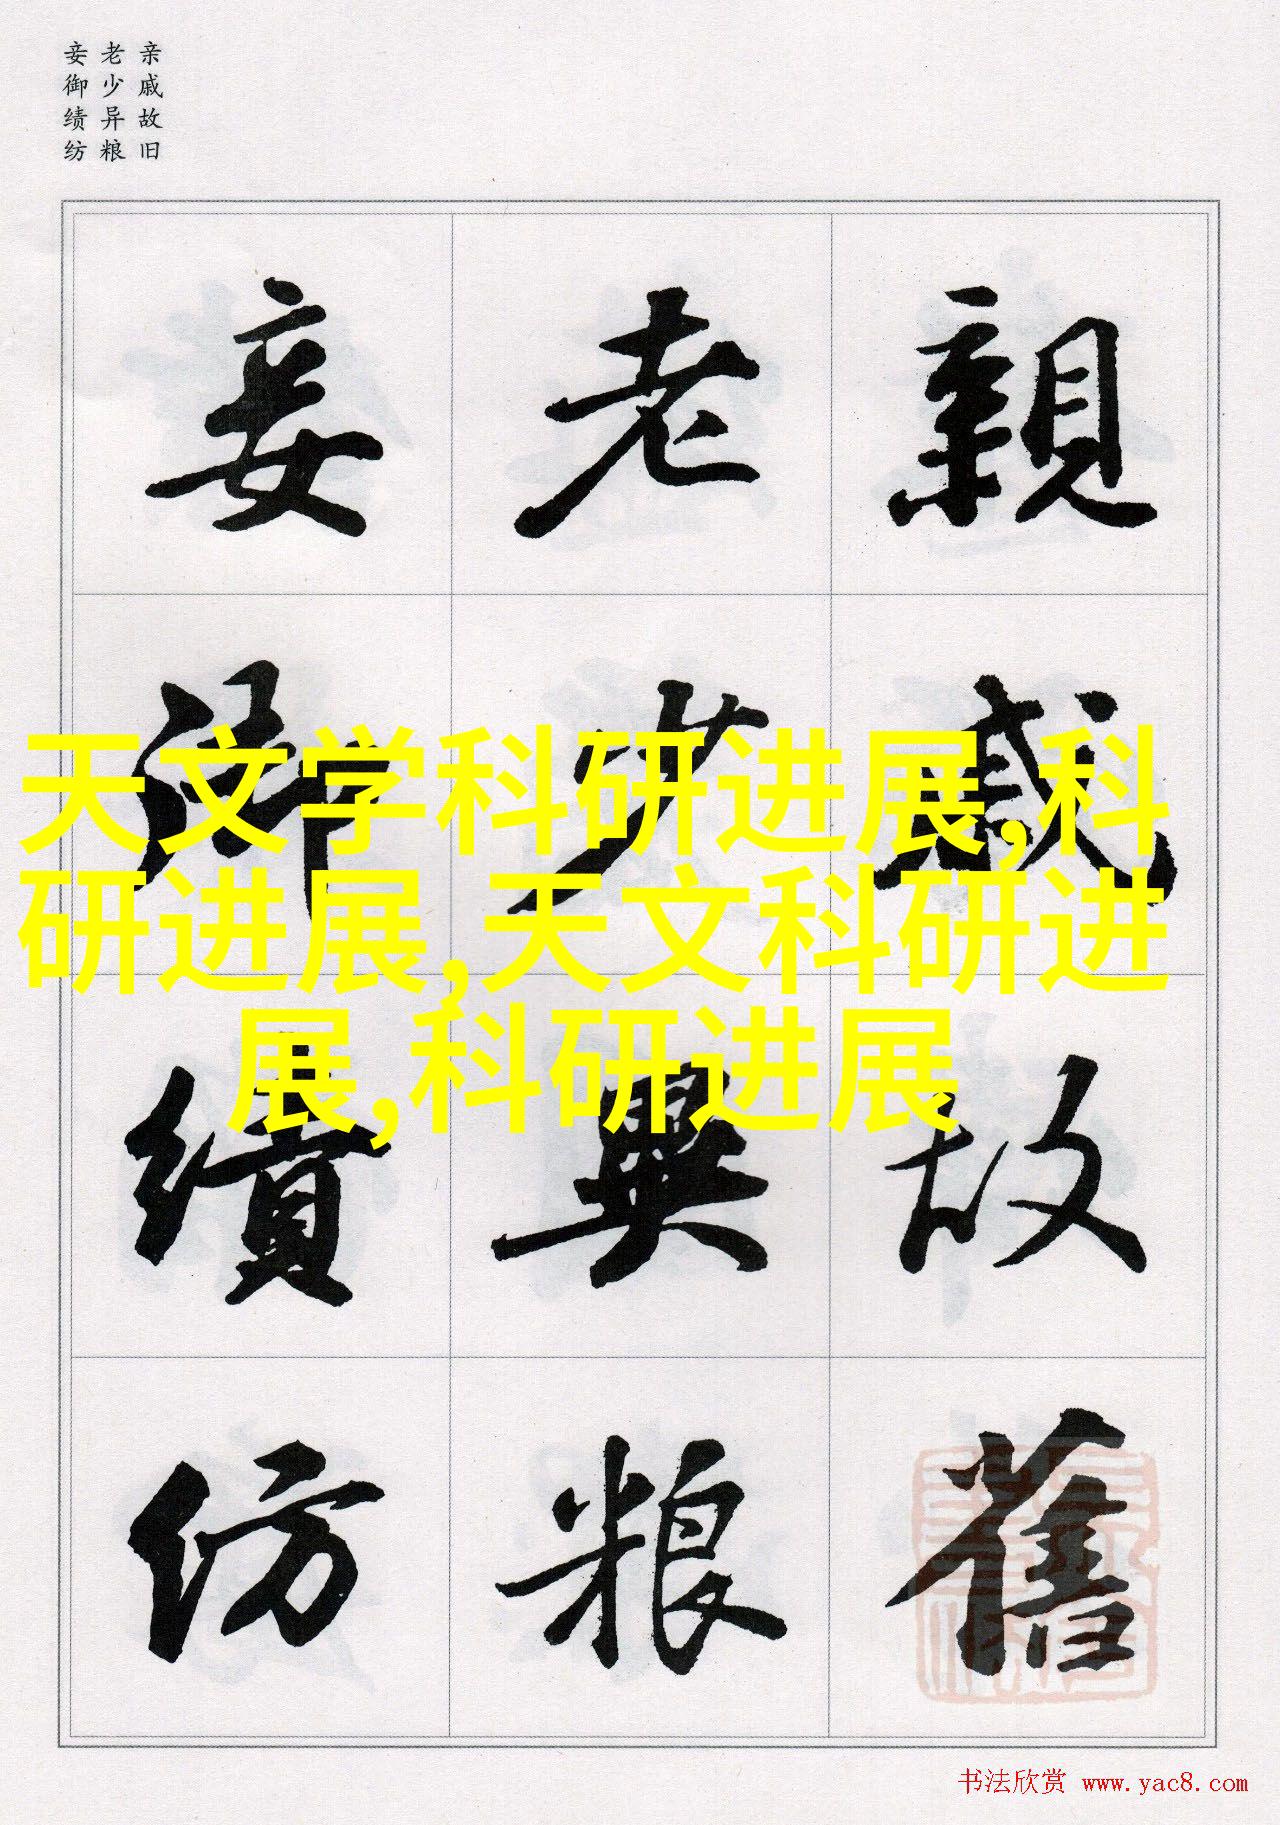 亲戚故旧
老少异粮
妾御绩纺
親戚故舊
老少異粮
妾御績紡
天文学科研进展,科
研进展,天文科研进
展,科研进展
书法欣赏 www.yac8.com